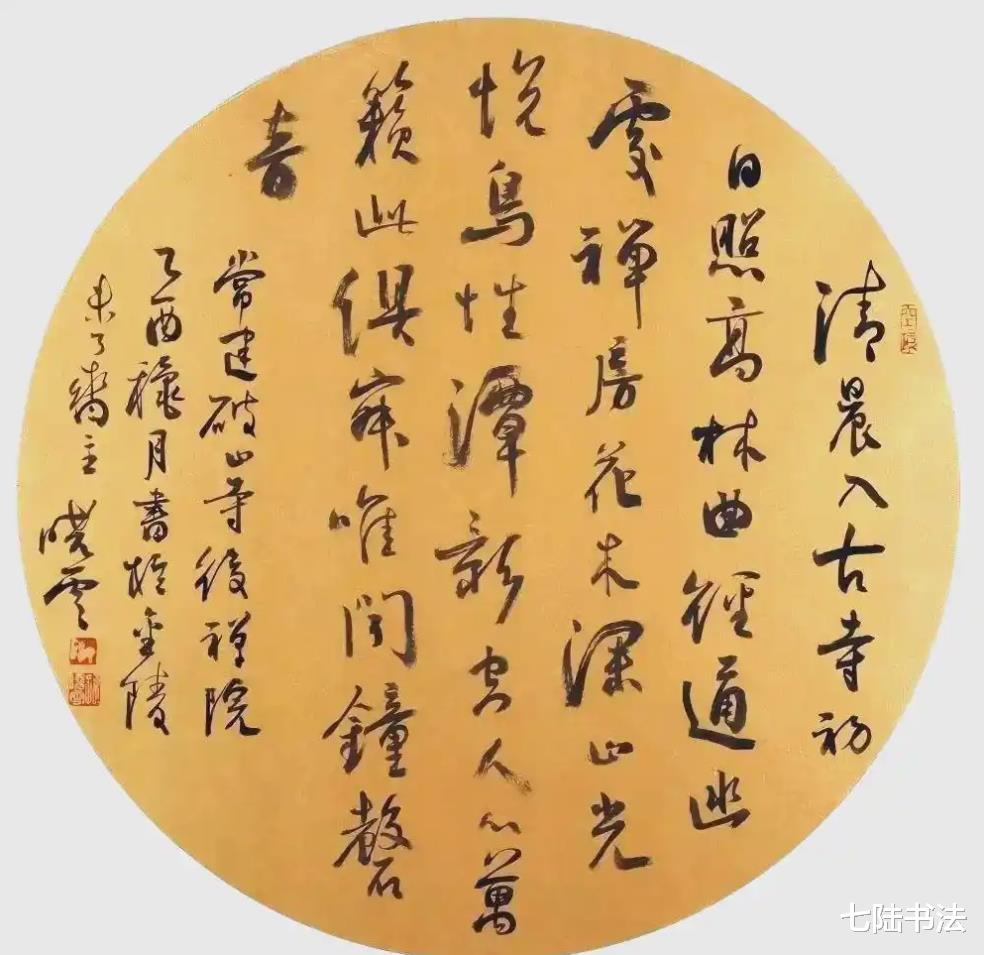 清晨入古寺初
日照高林曲徑通幽
處禪房花木深山光
悅鳥性潭影空人心萬
籟此俱寂唯聞鐘磬
音
常建破山寺後禪院
乙酉穐月書於金陵
未了齋主曉雲
七陆书法